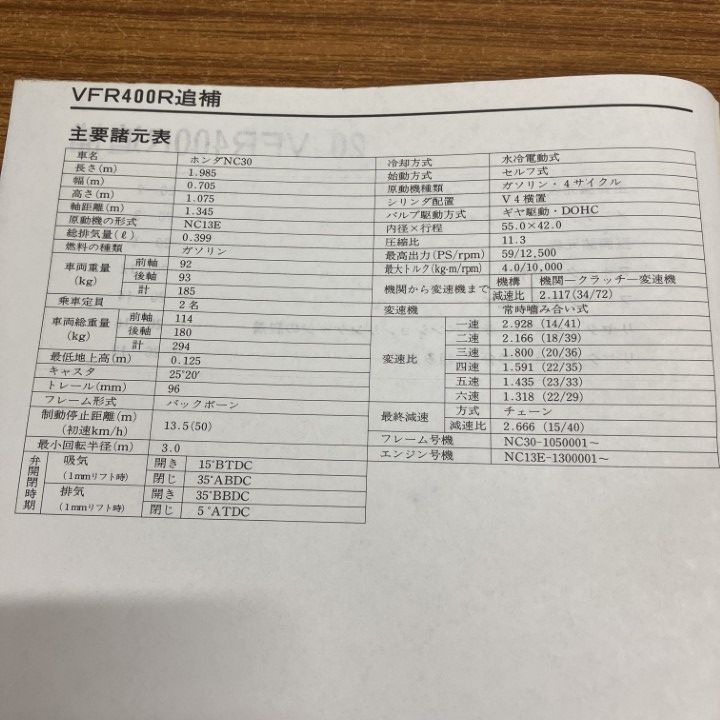 VFR400R追補
主要諸元表
車名 ホンダNC30
長さ(m) 1.985
幅(m) 0.705
高さ(m) 1.075
軸距離(m) 1.345
原動機の形式 NC13E
総排気量(ℓ) 0.399
燃料の種類 ガソリン
車両重量(kg) 前軸 92
後軸 93
計 185
乗車定員 2名
車両総重量(kg) 前軸 114
後軸 180
計 294
最低地上高(m) 0.125
キャスタ 25°20′
トレール(mm) 96
フレーム形式 バックボーン
制動停止距離(m)
(初速km/h) 13.5(50)
最小回転半径(m) 3.0
弁開閉時期 吸気
(1mmリフト時) 開き 15°BTDC
閉じ 35°ABDC
排気
(1mmリフト時) 開き 35°BBDC
閉じ 5°ATDC
冷却方式 水冷電動式
始動方式 セルフ式
原動機種類 ガソリン・4サイクル
シリンダ配置 V4横置
バルブ駆動方式 ギヤ駆動・DOHC
内径×行程 55.0×42.0
圧縮比 11.3
最高出力(PS/rpm) 59/12,500
最大トルク(kg-m/rpm) 4.0/10,000
機関から変速機まで 機構 機関―クラッチ―変速機
減速比 2.117(34/72)
変速機 常時噛み合い式
変速比 一速 2.928 (14/41)
二速 2.166 (18/39)
三速 1.800 (20/36)
四速 1.591 (22/35)
五速 1.435 (23/33)
六速 1.318 (22/29)
最終減速 方式 チェーン
減速比 2.666 (15/40)
フレーム号機 NC30-1050001～
エンジン号機 NC13E-1300001～